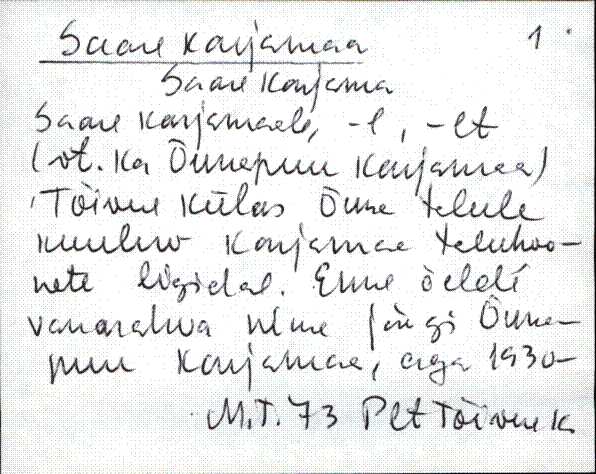 Saare karjamaa 1.
Saare karjama
Saare karjamaale, -l, -lt
(vt. ka Õunapuu karjamaa)
Tõivere külas Õuna talule
kuuluv karjamaa taluhoo-
nete ligidal. Enne öeldi
vanarahva nime järgi Õuna-
puu karjamaa, aga 1930-
M.T. 73 Plt Tõivere k